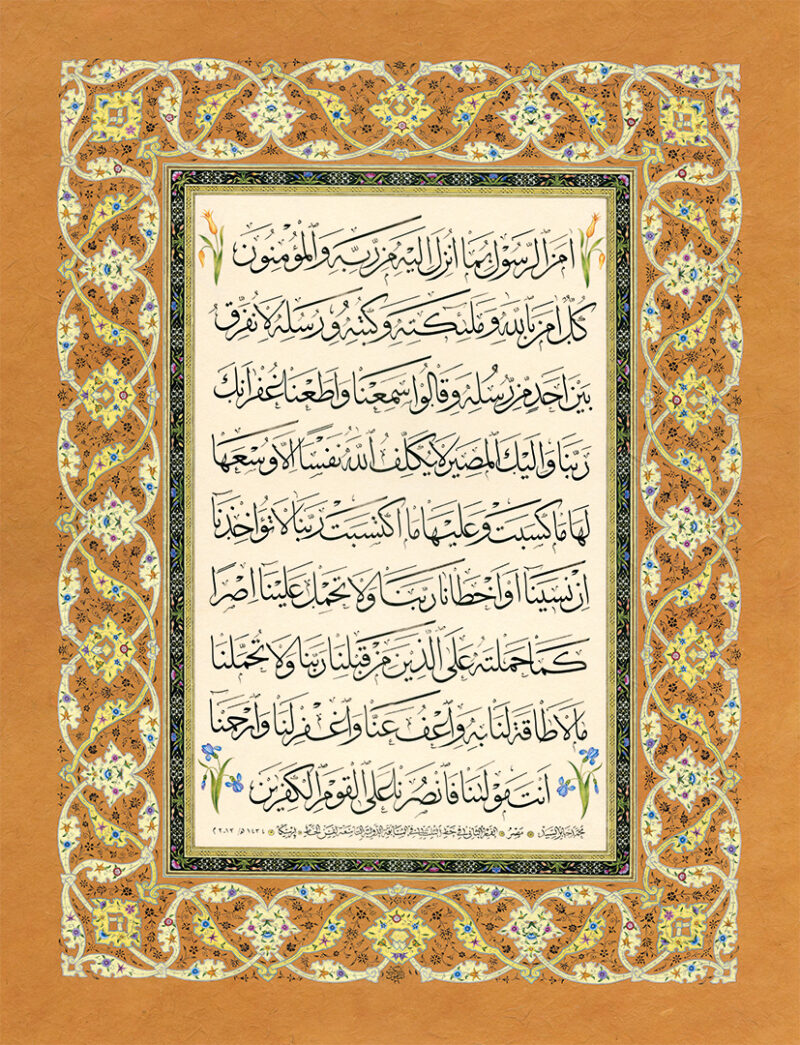 اٰمَنَ الرَّسُوْلُ بِمَا اُنْزِلَ اِلَيْهِ مِنْ رَّبِّهٖ وَالْمُؤْمِنُوْنَ
كُلٌّ اٰمَنَ بِاللّٰهِ وَمَلٰئِكَتِهٖ وَكُتُبِهٖ وَرُسُلِهٖ لَا نُفَرِّقُ
بَيْنَ اَحَدٍ مِنْ رُسُلِهٖ وَقَالُوْا سَمِعْنَا وَاَطَعْنَا غُفْرَانَكَ
رَبَّنَا وَاِلَيْكَ الْمَصِيْرُ لَا يُكَلِّفُ اللّٰهُ نَفْسًا اِلَّا وُسْعَهَا
لَهَا مَا كَسَبَتْ وَعَلَيْهَا مَا اكْتَسَبَتْ رَبَّنَا لَا تُؤَاخِذْنَا
اِنْ نَسِيْنَا اَوْ اَخْطَأْنَا رَبَّنَا وَلَا تَحْمِلْ عَلَيْنَا اِصْرًا
كَمَا حَمَلْتَهٗ عَلَى الَّذِيْنَ مِنْ قَبْلِنَا رَبَّنَا وَلَا تُحَمِّلْنَا
مَا لَا طَاقَةَ لَنَا بِهٖ وَاعْفُ عَنَّا وَاغْفِرْ لَنَا وَارْحَمْنَا
اَنْتَ مَوْلٰنَا فَانْصُرْنَا عَلَى الْقَوْمِ الْكٰفِرِيْنَ
مصر ١٤٣٤ ٢٠١٣ م